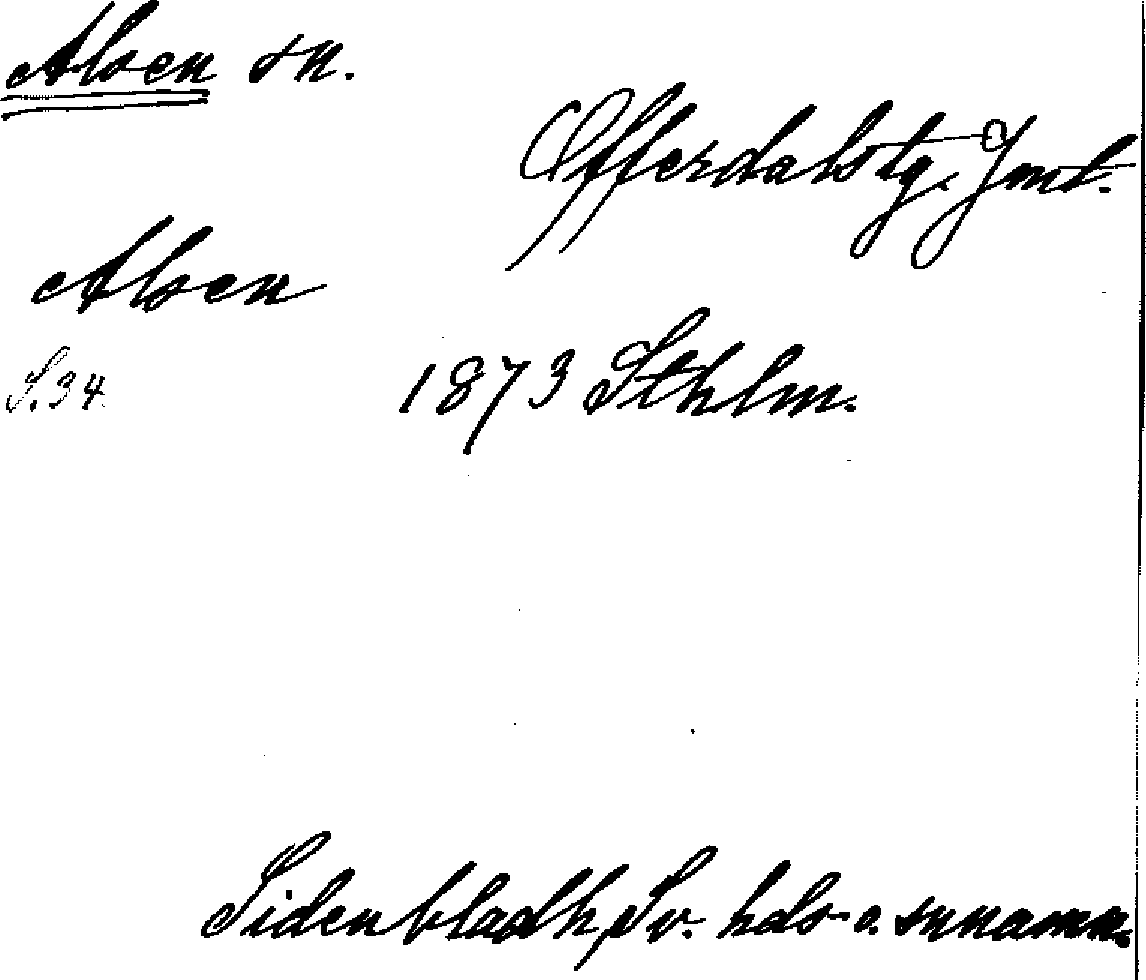 Alsen sn.
Offerdals tg. Jmt.
Alsen
S. 34. 1873 Sthlm.
Sidenbladh, Sv. hds- o. snnamn.